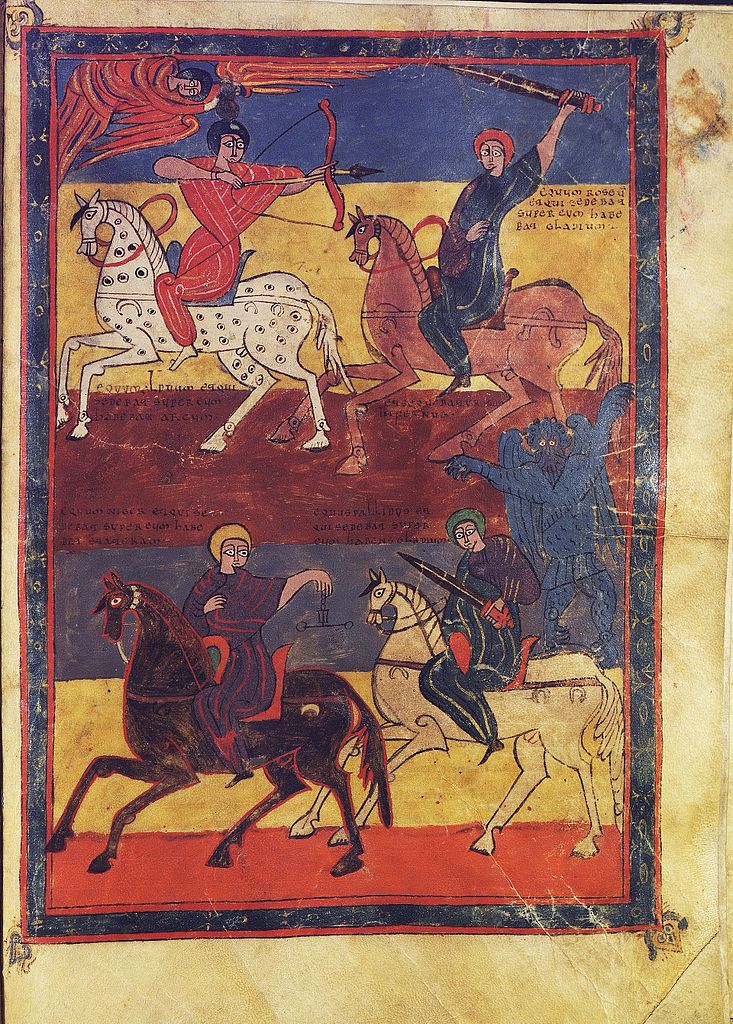 equum roseū
et qui sedebat
super eum habe
bat gladium
equum album et qui
sedebat super eum
habebat arcum
infernus
equum niger et qui se
debat super eum habe
bat stateram
equus pallidus et
qui sedebat super
eum habens gladium